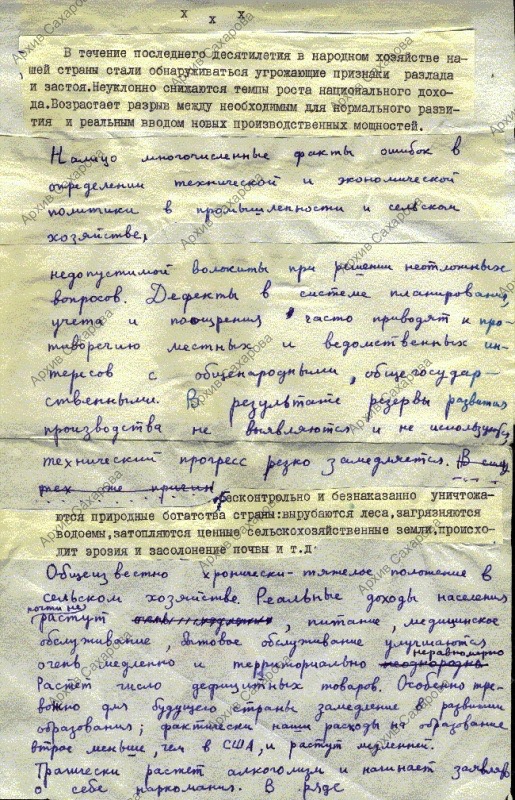 х х х
В течение последнего десятилетия в народном хозяйстве на-
шей страны стали обнаруживаться угрожающие признаки разлада
и застоя.Неуклонно снижаются темпы роста национального дохо-
да.Возрастает разрыв между необходимым для нормального разви-
тия и реальным вводом новых производственных мощностей.
Налицо многочисленные факты ошибок в
определении технической и экономической
политики в промышленности и сельском
хозяйстве,
недопустимой волокиты при решении неотложных
вопросов. Дефекты в системе планирования,
учета и поощрения часто приводят к про-
тиворечию местных и ведомственных ин-
тересов с общенародными, общегосудар-
ственными. В результате резервы развития
производства не выявляются и не используются
технический прогресс резко замедляется. В силу
тех же причин
бесконтрольно и безнаказанно уничтожа-
ются природные богатства страны:вырубаются леса,загрязняются
водоемы,затопляются ценные сельскохозяйственные земли,происхо-
дит эрозия и засолонение почвы и т.д.
Общеизвестно хронически-тяжелое положение в
сельском хозяйстве. Реальные доходы населения
почти не
растут, питание, медицинское
обслуживание, бытовое обслуживание улучшаются
неравномерно
очень медленно и территориально неоднородно
Растет число дефицитных товаров. Особенно тре-
вожно для будущего страны замедление в развитии
образования; фактически наши расходы на образование
втрое меньше, чем в США, и растут медленней.
Трагически растет алкоголизм и начинает заявлять
о себе наркомания. В ряде
Архив Сахарова